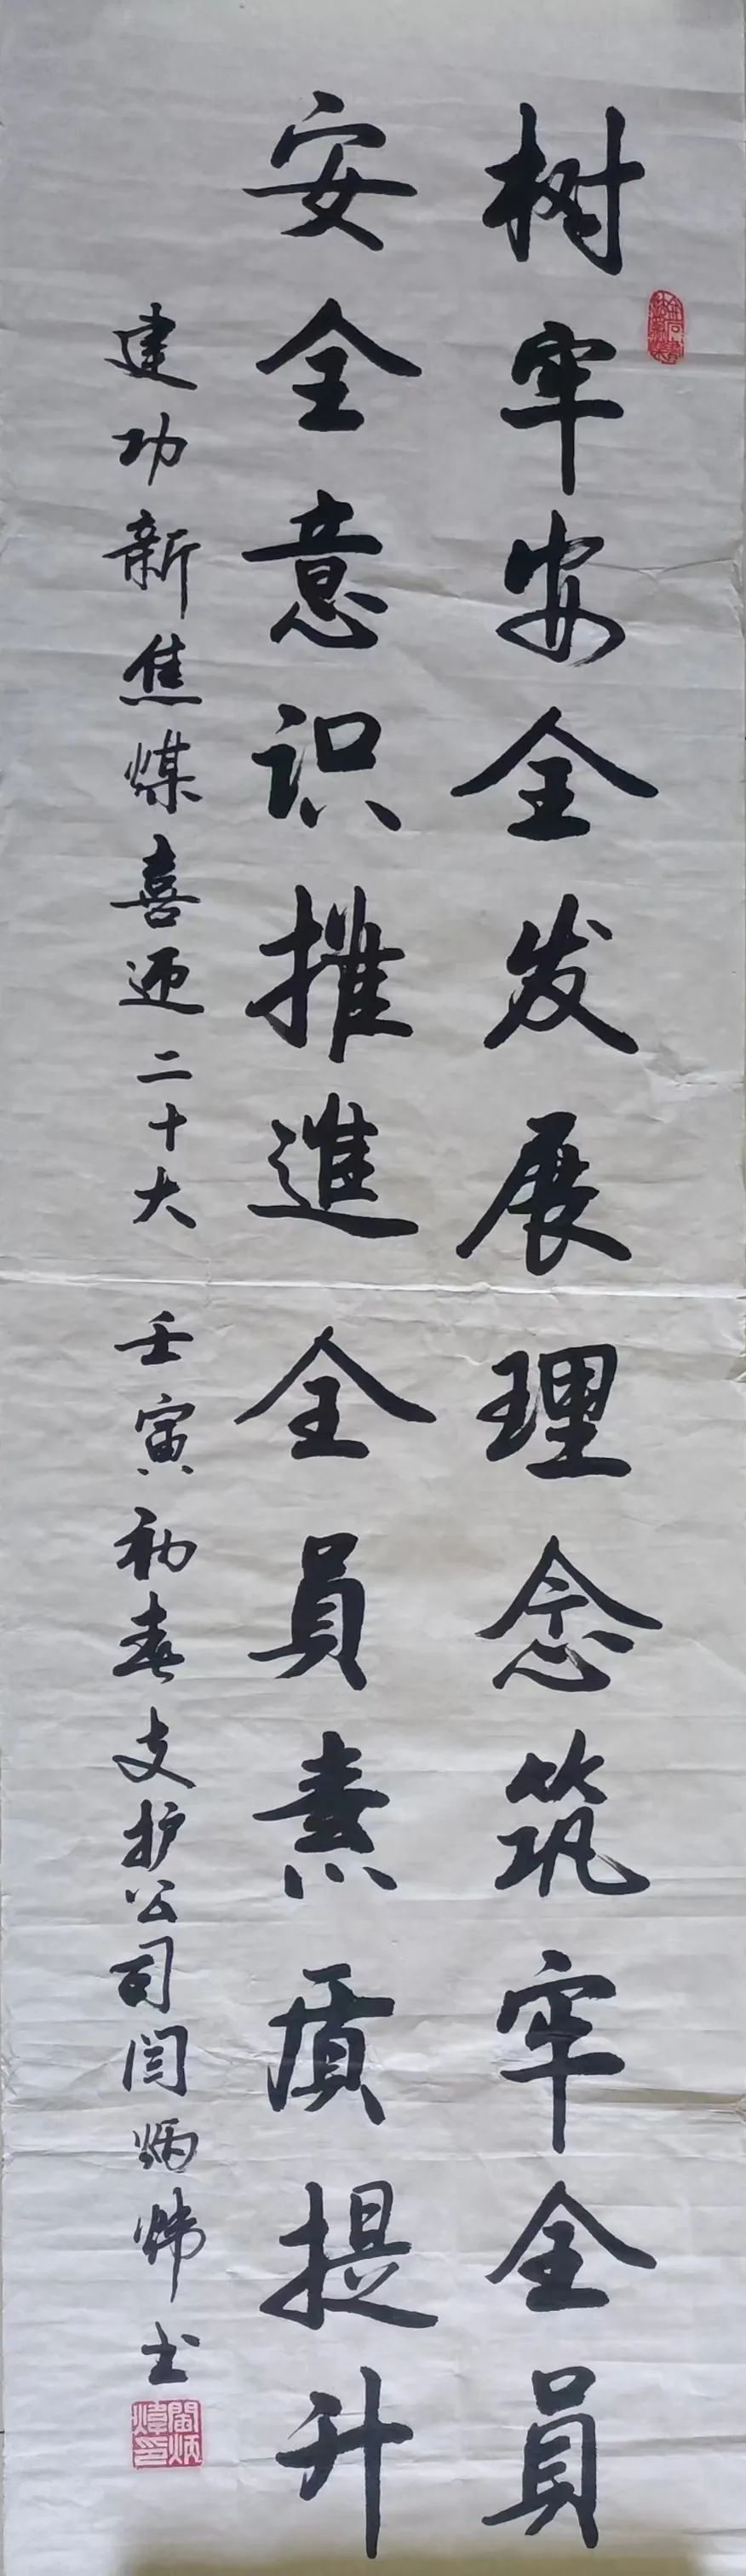 树牢安全发展理念筑牢全員
安全意识推進全員素质提升
建功新焦煤喜迎二十大 壬寅初春支护公司闫炳炜书
閆炳
煒印